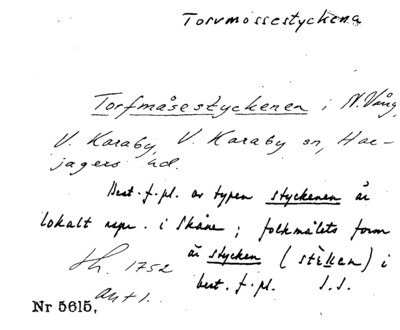 Torvmossestyckena
Torfmåsestyckenen i N. Vång,
V. Karaby, V. Karaby sn, Har-
jagers hd.
Best. f. pl. av typen styckenen är
lokalt repr. i Skåne; folkmålets form
är stycken (stèken) i
best. f. pl. S.S.
1752
Nr 5615,